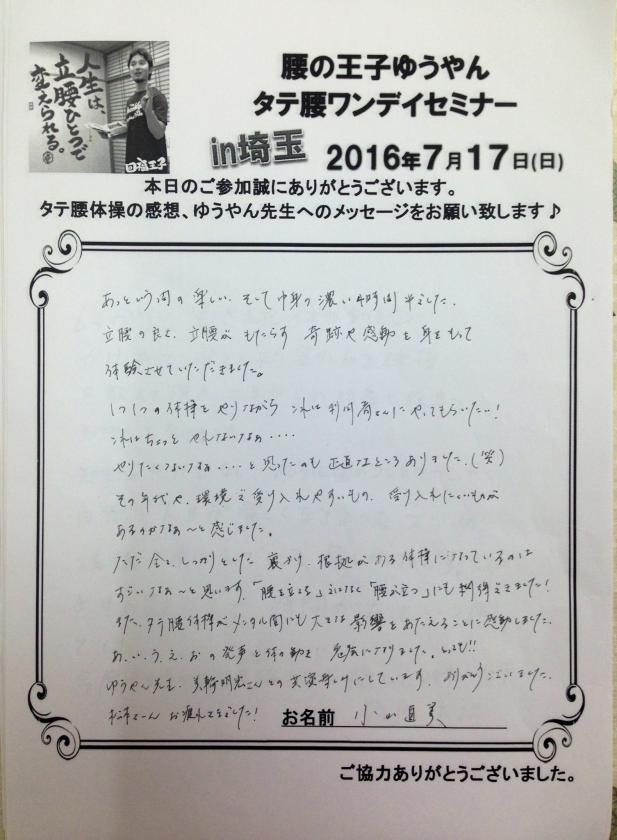 人生は、
立腰ひとつで
変えられる。
腰の王子ゆうやん
タテ腰ワンデイセミナー
in埼玉
2016年7月17日(日)
本日のご参加誠にありがとうございます。
タテ腰体操の感想、ゆうやん先生へのメッセージをお願い致します♪
あっという間の楽しい、そして中身の濃い4時間半でした。
立腰の良さ、立腰がもたらす 奇跡や感動を身をもって
体験させていただきました。
1つ1つの体操をやりながら これは利用者さんにやってもらいたい!
これはちょっとやれないなぁ・・・・
やりたくないなぁ・・・・と思ったのも正直なところありました。(笑)
その年代や、環境で受け入れやすいもの、受け入れにくいものが
あるのかなぁ〜と感じました。
ただ全て、しっかりとした裏付け、根拠がある体操になっているのは
すごいなぁ〜と思います。「腰を立たせる」ではなく「腰が立つ」にも納得できました!
また、タテ腰体操がメンタル面にも大きな影響をあたえることに感動しました。
あ、い、う、え、おの発声と体の動き 勉強になりました。とっても!!
ゆうやん先生、美輪明宏さんとの共演楽しみにしています。ありがとうございました。
お疲れさまでした!
お名前 小山直美
ご協力ありがとうございました。